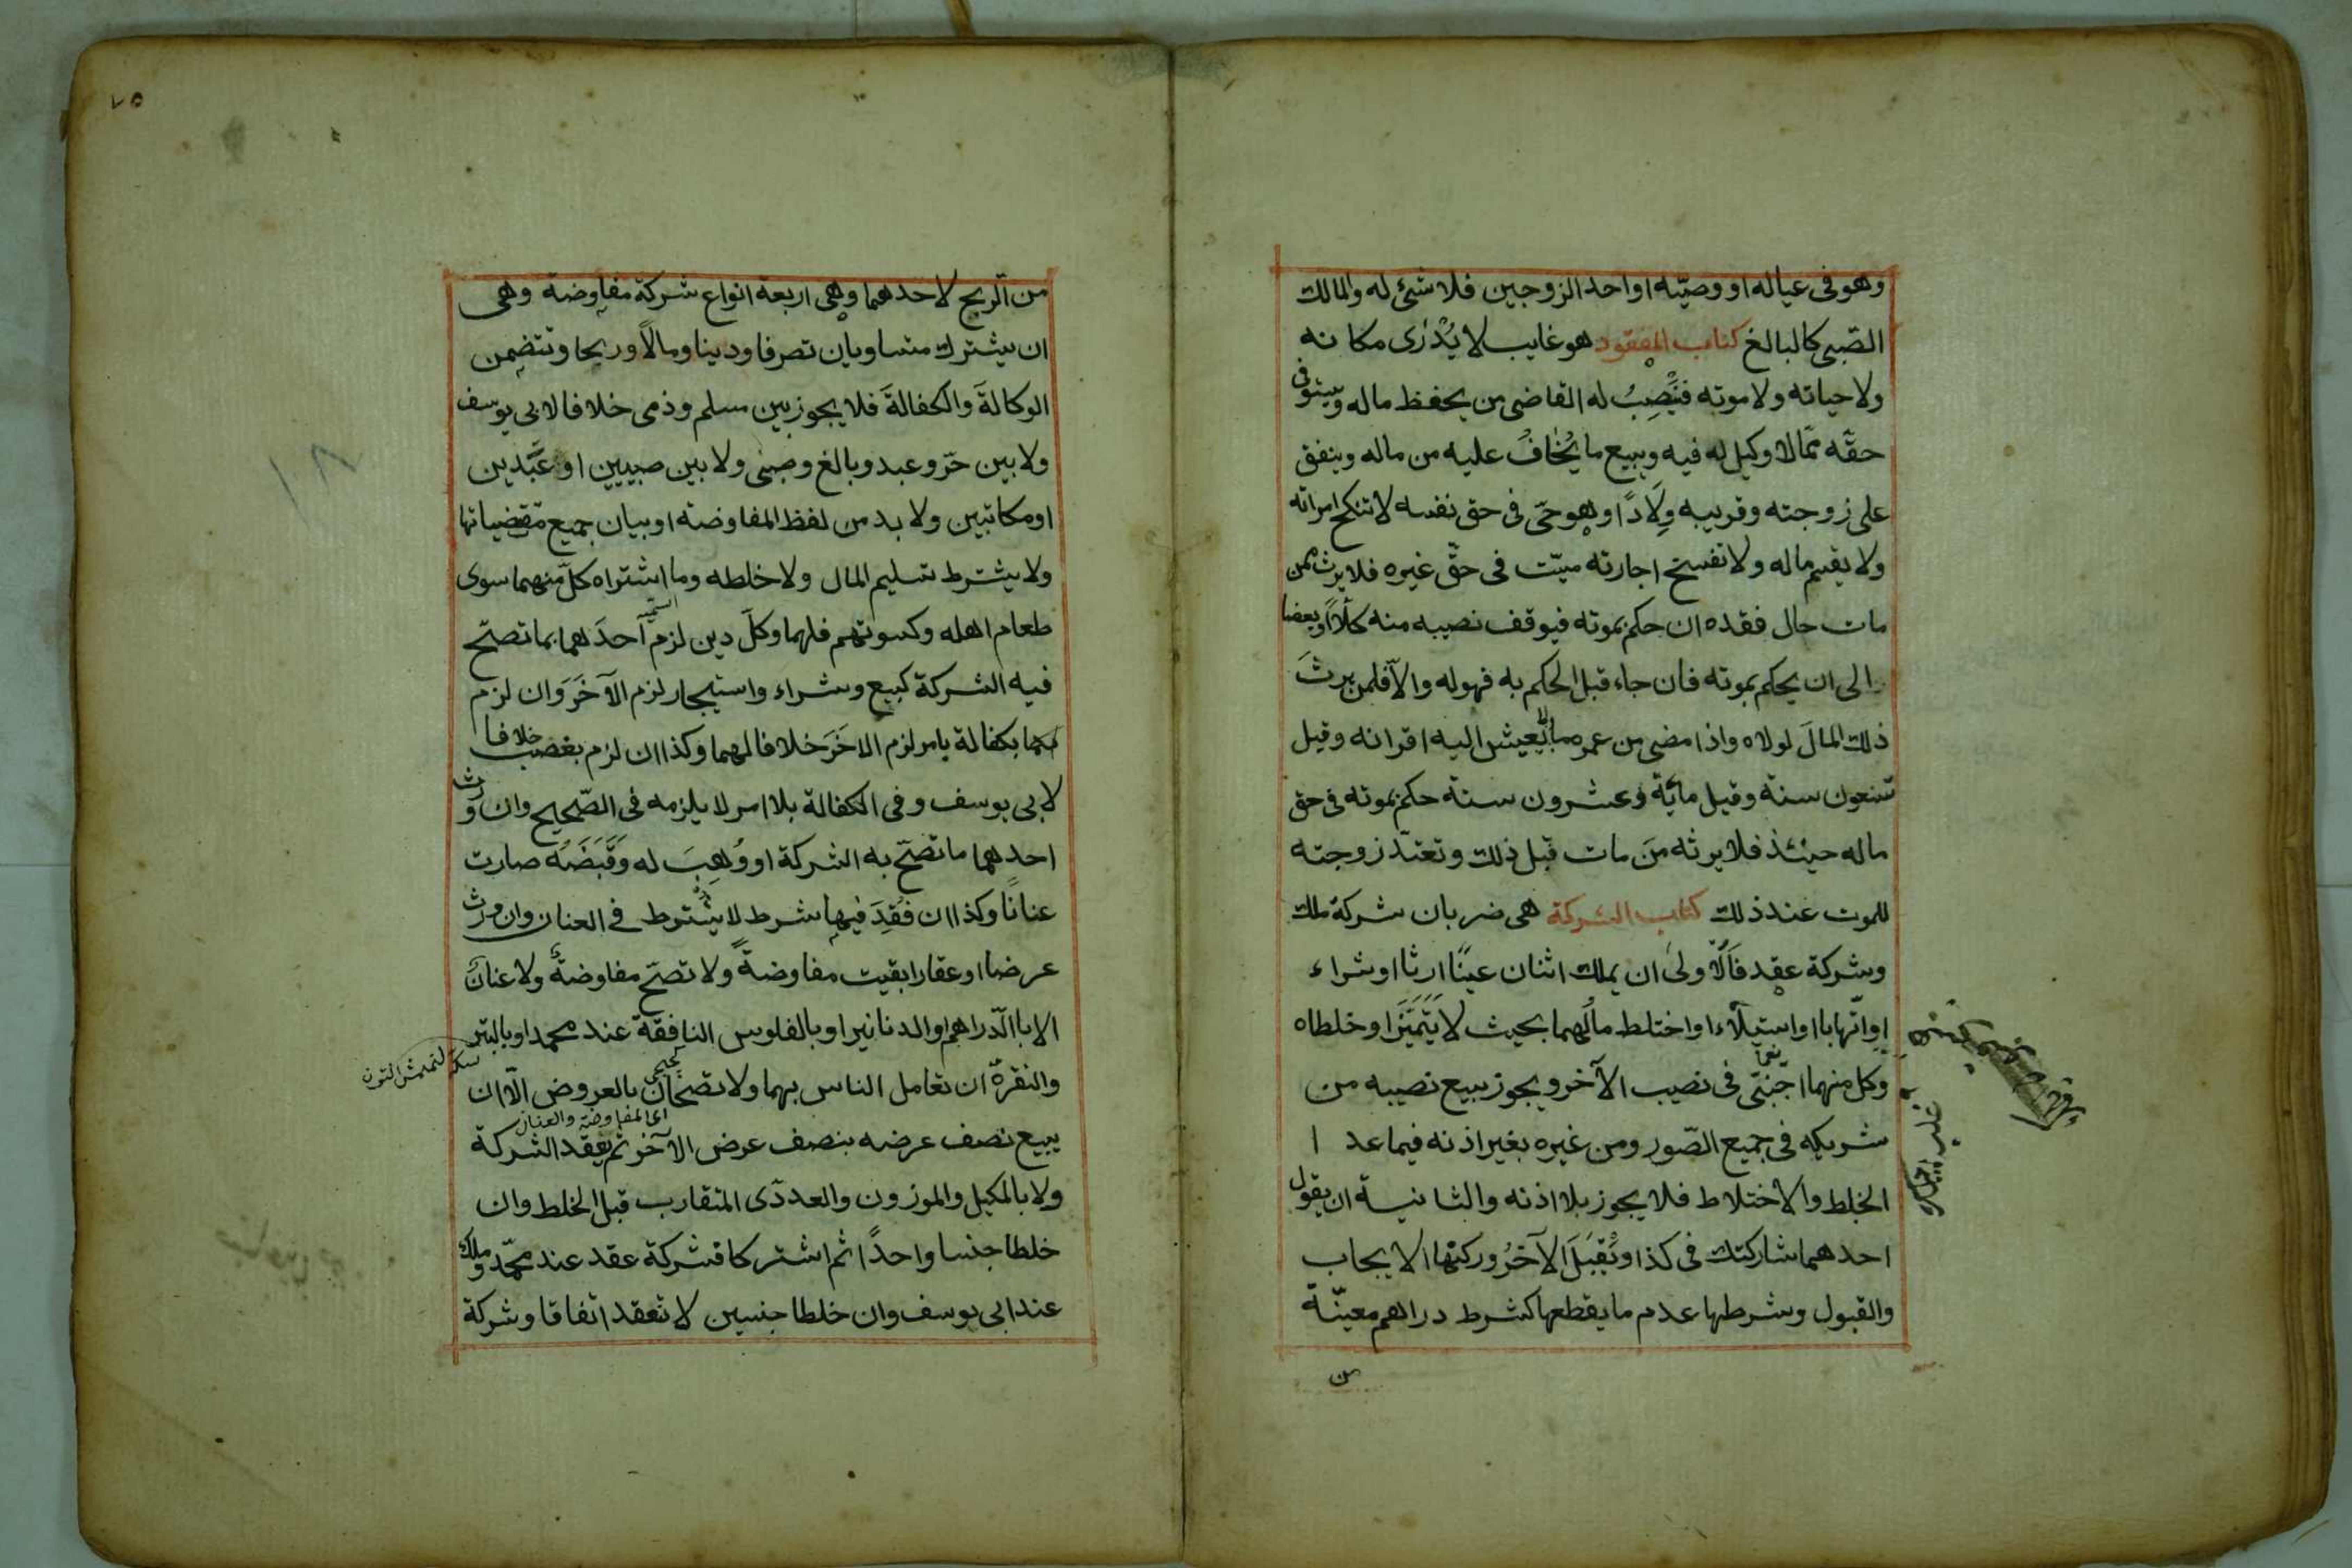 وهو فى عياله او وصيّه او احد الزوجين فلا شئ له والمالك
الصّبى كالبالغ كتاب المفقود هو غايب لا يُدْرٰى مكانه
ولا حياته ولا موته فيَنْصِبُ له القاضى من يحفظ ماله ويستوفى
حقّه ممّا لا وكيل له فيه ويبيع ما يُخٰافُ عليه من ماله وينفق
على زوجته وقريبه وِلَادًا وهو حىّ فى حق نفسه لا تنكح امراته
ولا يقسم ماله ولا تفسخ اجارته ميّت فى حقّ غيره فلا يرث ممن
مات حال فقده ان حكم بموته فيوقف نصيبه منه كُلًّا او بعضا
الى ان يحكم بموته فان جاء قبل الحكم به فهو له والآ فلمن يرثَ
ذلك المالَ لولاه واذا مضى من عمره مالا يعيش اليه اقرانه وقيل
تسعون سنة وقيل مائة وعشرون سنة حكم بموته فى حق
ماله حينئذ فلا يرثه مَن مات قبل ذلك وتعتدّ زوجته
للموت عند ذلك كتاب الشركة هى ضربان شركة ملك
وشركة عقد فَالْاُولى ان يملك اثنان عينًا ارثا او شراء
او اتّهابا او استيلآء او اختلط مالُهما بحيث لا يَتَمَيَّزَ او خلطاه
وكل منهما اجنبىّ فى نصيب الآخر ويجوز بيع نصيبه من
شريكه فى جميع الصّور ومن غيره بغير اذنه فيما عدا
الخلط والاختلاط فلا يجوز بلا اذنه والثانية ان يقول
احدهما شاركتك فى كذا ويُقبَلَ الآخرُ وركنها الايجاب
والقبول وشرطها عدم ما يقطعها كشرط دراهم معيّنة
من
٧٥
من الرّبح لاحدهما وهى اربعة انواع شركة مفاوضة وهى
ان يشترك متساويان تصرفا ودينا ومالًا وربحا وتتضمن
الوكالةَ والكفالةَ فلا يجوز بين مسلم وذمى خلافا لابى يوسف
ولا بين حرّ وعبد وبالغ وصبى ولا بين صبيين او عَبْدين
او مكاتبين ولا بد من لفظ المفاوضة او بيان جميع مقتضياتها
ولا يشترط تسليم المال ولا خلطه وما اشتراه كلّ منهما سوى
طعام اهله وكسوتهم فلهما وكلّ دين لزم احدَهما بما تصحّ
فيه الشركة كبيع وشراء واستيجار لزم الآخَرَ وان لزم
بكفالة بامر لزم الاخَرَ خلافا لهما وكذا ان لزم بغصب خلافا
لابى يوسف وفى الكفالة بلا امر لا يلزمه فى الصّحيح وان ورث
احدهما ما تصحّ به الشركة او وُهِبَ له وَقَبَضَهُ صارت
عنانًا وكذا ان فُقِدَ فيها شرط لا يشترط فى العنان وان ورث
عرضا او عقارا بقيت مفاوضةً ولا تصحّ مفاوضةٌ ولا عنانٌ
الا باالدّراهم او الدنانير او بالفلوس النافقة عند محمد او بالتبر
والنقرة ان تعامل الناس بهما ولا تصحان بالعروض الّا ان
اى المفاوضة والعنان
يبيع نصف عرضه بنصف عرض الآخر ثم يعقد الشركة
ولا بالمكيل والموزون والعددى المتقارب قبل الخلط وان
خلطا جنسا واحدًا ثم اشتركا فشركة عقد عند محمّد وملك
عند ابى يوسف وان خلطا جنسين لا تعقد اتفاقا وشركة